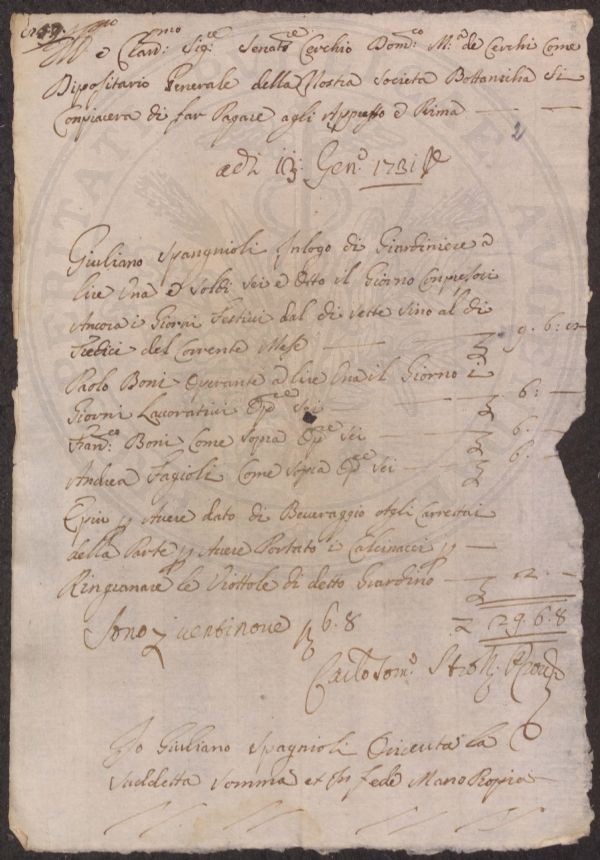 Ill:mo e Clar:mo Sig:re Senat:re Cerchio Dom:co M:a de Cerchi Come
Dipositario Generale della Nostra Societa Bottanicha Si
Conpiacera di far Pagare agli Appresso e Prima
2
adi 13: Gen:o 1731
Giuliano Spagnioli In logo di Giardiniere a
lire Una e Soldi sei e Otto il Giorno Conpresovi
Ancora i Giorni Festivi dal di sette Sino al di
Tredici del Corrente Mese — 9. 6: 8
Paolo Boni Operante a lire Una il Giorno i
Giorni Lavorativi Op:re Sei — 6: —
Fran:co Boni Come Sopra Op:re Sei — 6. —
Andrea Fagioli Come Sopra Op:re Sei — 6. —
E piu Avere dato di Beveraggio
della Parte Avere Portato i Calcinacci
Ringianare le Viottole di detto Giardino — 2. —
Sono ventinove 6. 8 29. 6. 8
Carlo Tom:o Strozzi
Io Giuliano Spagnioli O riceuta la
Suddetta Somma et In fede Mano Propia